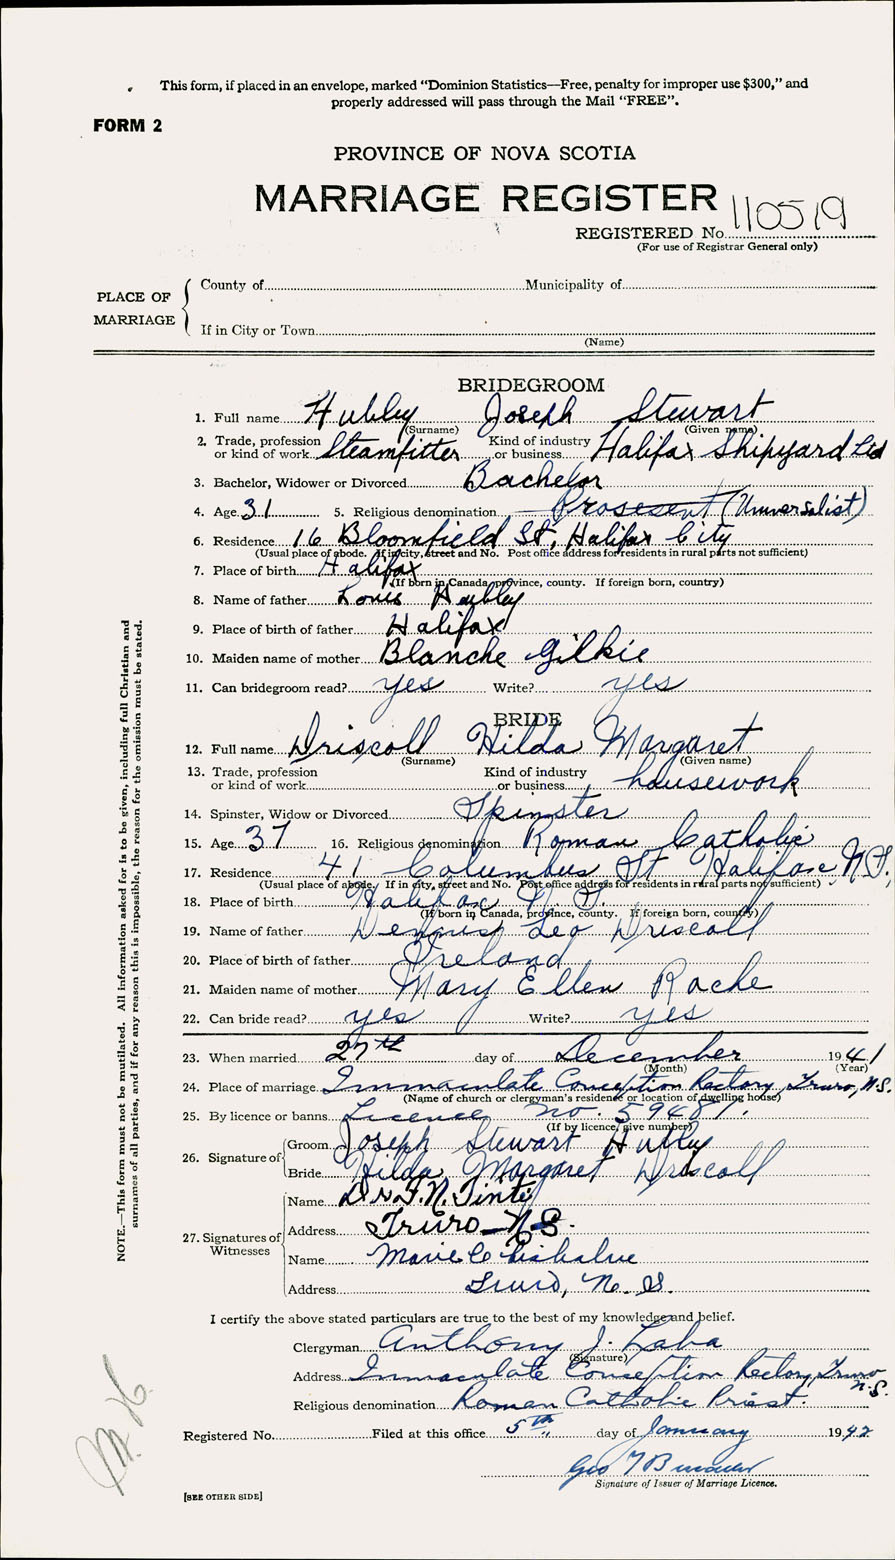 This form, if placed in an envelope, marked “Dominion Statistics—Free, penalty for improper use $300,” and
properly addressed will pass through the Mail “FREE”.
FORM 2
PROVINCE OF NOVA SCOTIA
MARRIAGE REGISTER
REGISTERED No. 110519
(For use of Registrar General only)
PLACE OF MARRIAGE
County of Municipality of
If in City or Town
(Name)
BRIDEGROOM
1. Full name Hubley Joseph Stewart
(Surname) (Given name)
2. Trade, profession or kind of work Steamfitter Kind of industry or business Halifax Shipyard Ltd
3. Bachelor, Widower or Divorced Bachelor
4. Age 31 5. Religious denomination (Universalist)
6. Residence 16 Bloomfield St, Halifax City
(Usual place of abode. If in city, street and No. Post office address for residents in rural parts not sufficient)
7. Place of birth Halifax
(If born in Canada, province, county. If foreign born, country)
8. Name of father Louis Hubley
9. Place of birth of father Halifax
10. Maiden name of mother Blanche Gilkie
11. Can bridegroom read? yes Write? yes
BRIDE
12. Full name Driscoll Hilda Margaret
(Surname) (Given name)
13. Trade, profession or kind of work Kind of industry or business housework
14. Spinster, Widow or Divorced Spinster
15. Age 37 16. Religious denomination Roman Catholic
17. Residence 41 Columbus St Halifax N.S.
(Usual place of abode. If in city, street and No. Post office address for residents in rural parts not sufficient)
18. Place of birth Halifax N.S.
(If born in Canada, province, county. If foreign born, country)
19. Name of father Dennis Leo Driscoll
20. Place of birth of father Ireland
21. Maiden name of mother Mary Ellen Roche
22. Can bride read? yes Write? yes
23. When married 27th day of December 1941
(Month) (Year)
24. Place of marriage Immaculate Conception Rectory, Truro, N.S.
(Name of church or clergyman's residence or location of dwelling house)
25. By licence or banns Licence no. 59487.
(If by licence, give number)
26. Signature of Groom Joseph Stewart Hubley
Bride Hilda Margaret Driscoll
27. Signatures of Witnesses
Name
Address Truro N.S.
Name Marie
Address Truro, N. S.
I certify the above stated particulars are true to the best of my knowledge and belief.
Clergyman Anthony J. Laba
(Signature)
Address Immaculate Conception Rectory, Truro N.S.
Religious denomination Roman Catholic Priest.
Registered No. Filed at this office 5th day of January 1942
Geo
Signature of Issuer of Marriage Licence.
[SEE OTHER SIDE]
NOTE.—This form must not be mutilated. All information asked for is to be given, including full Christian and
surnames of all parties, and if for any reason this is impossible, the reason for the omission must be stated.